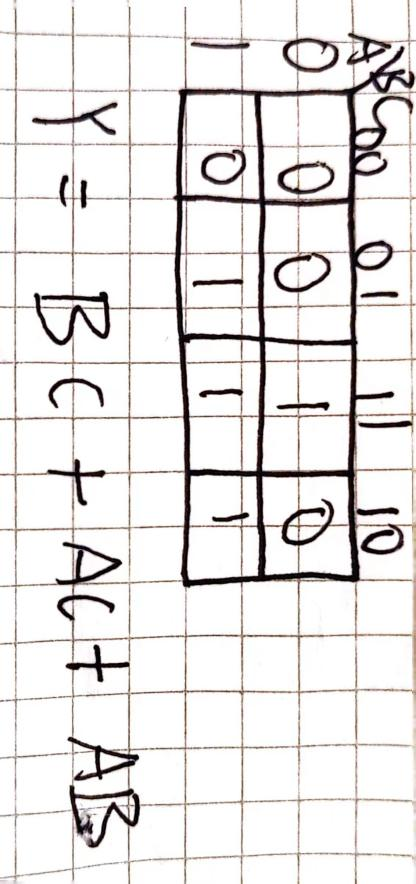 A\BC 00 01 11 10
0 0 0 1 0
1 0 1 1 1
Y = BC + AC + AB